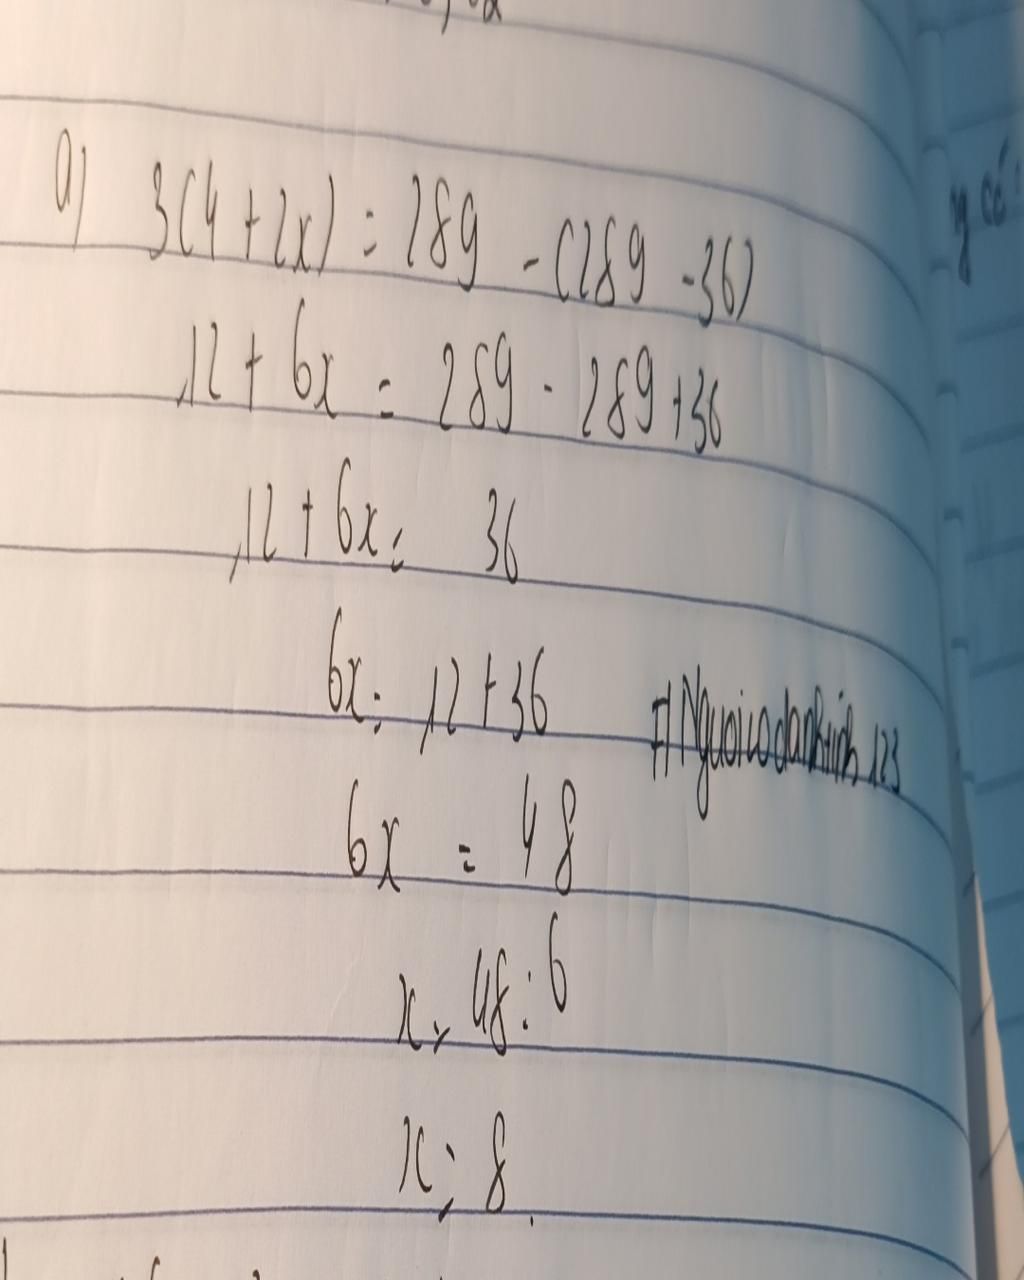 a) 3(4 + 2x) = 289 - (289 - 36)
12 + 6x = 289 - 289 + 36
12 + 6x = 36
6x = 12 + 36
#Nguoicodanhtinh123
6x = 48
x = 48 : 6
x = 8.